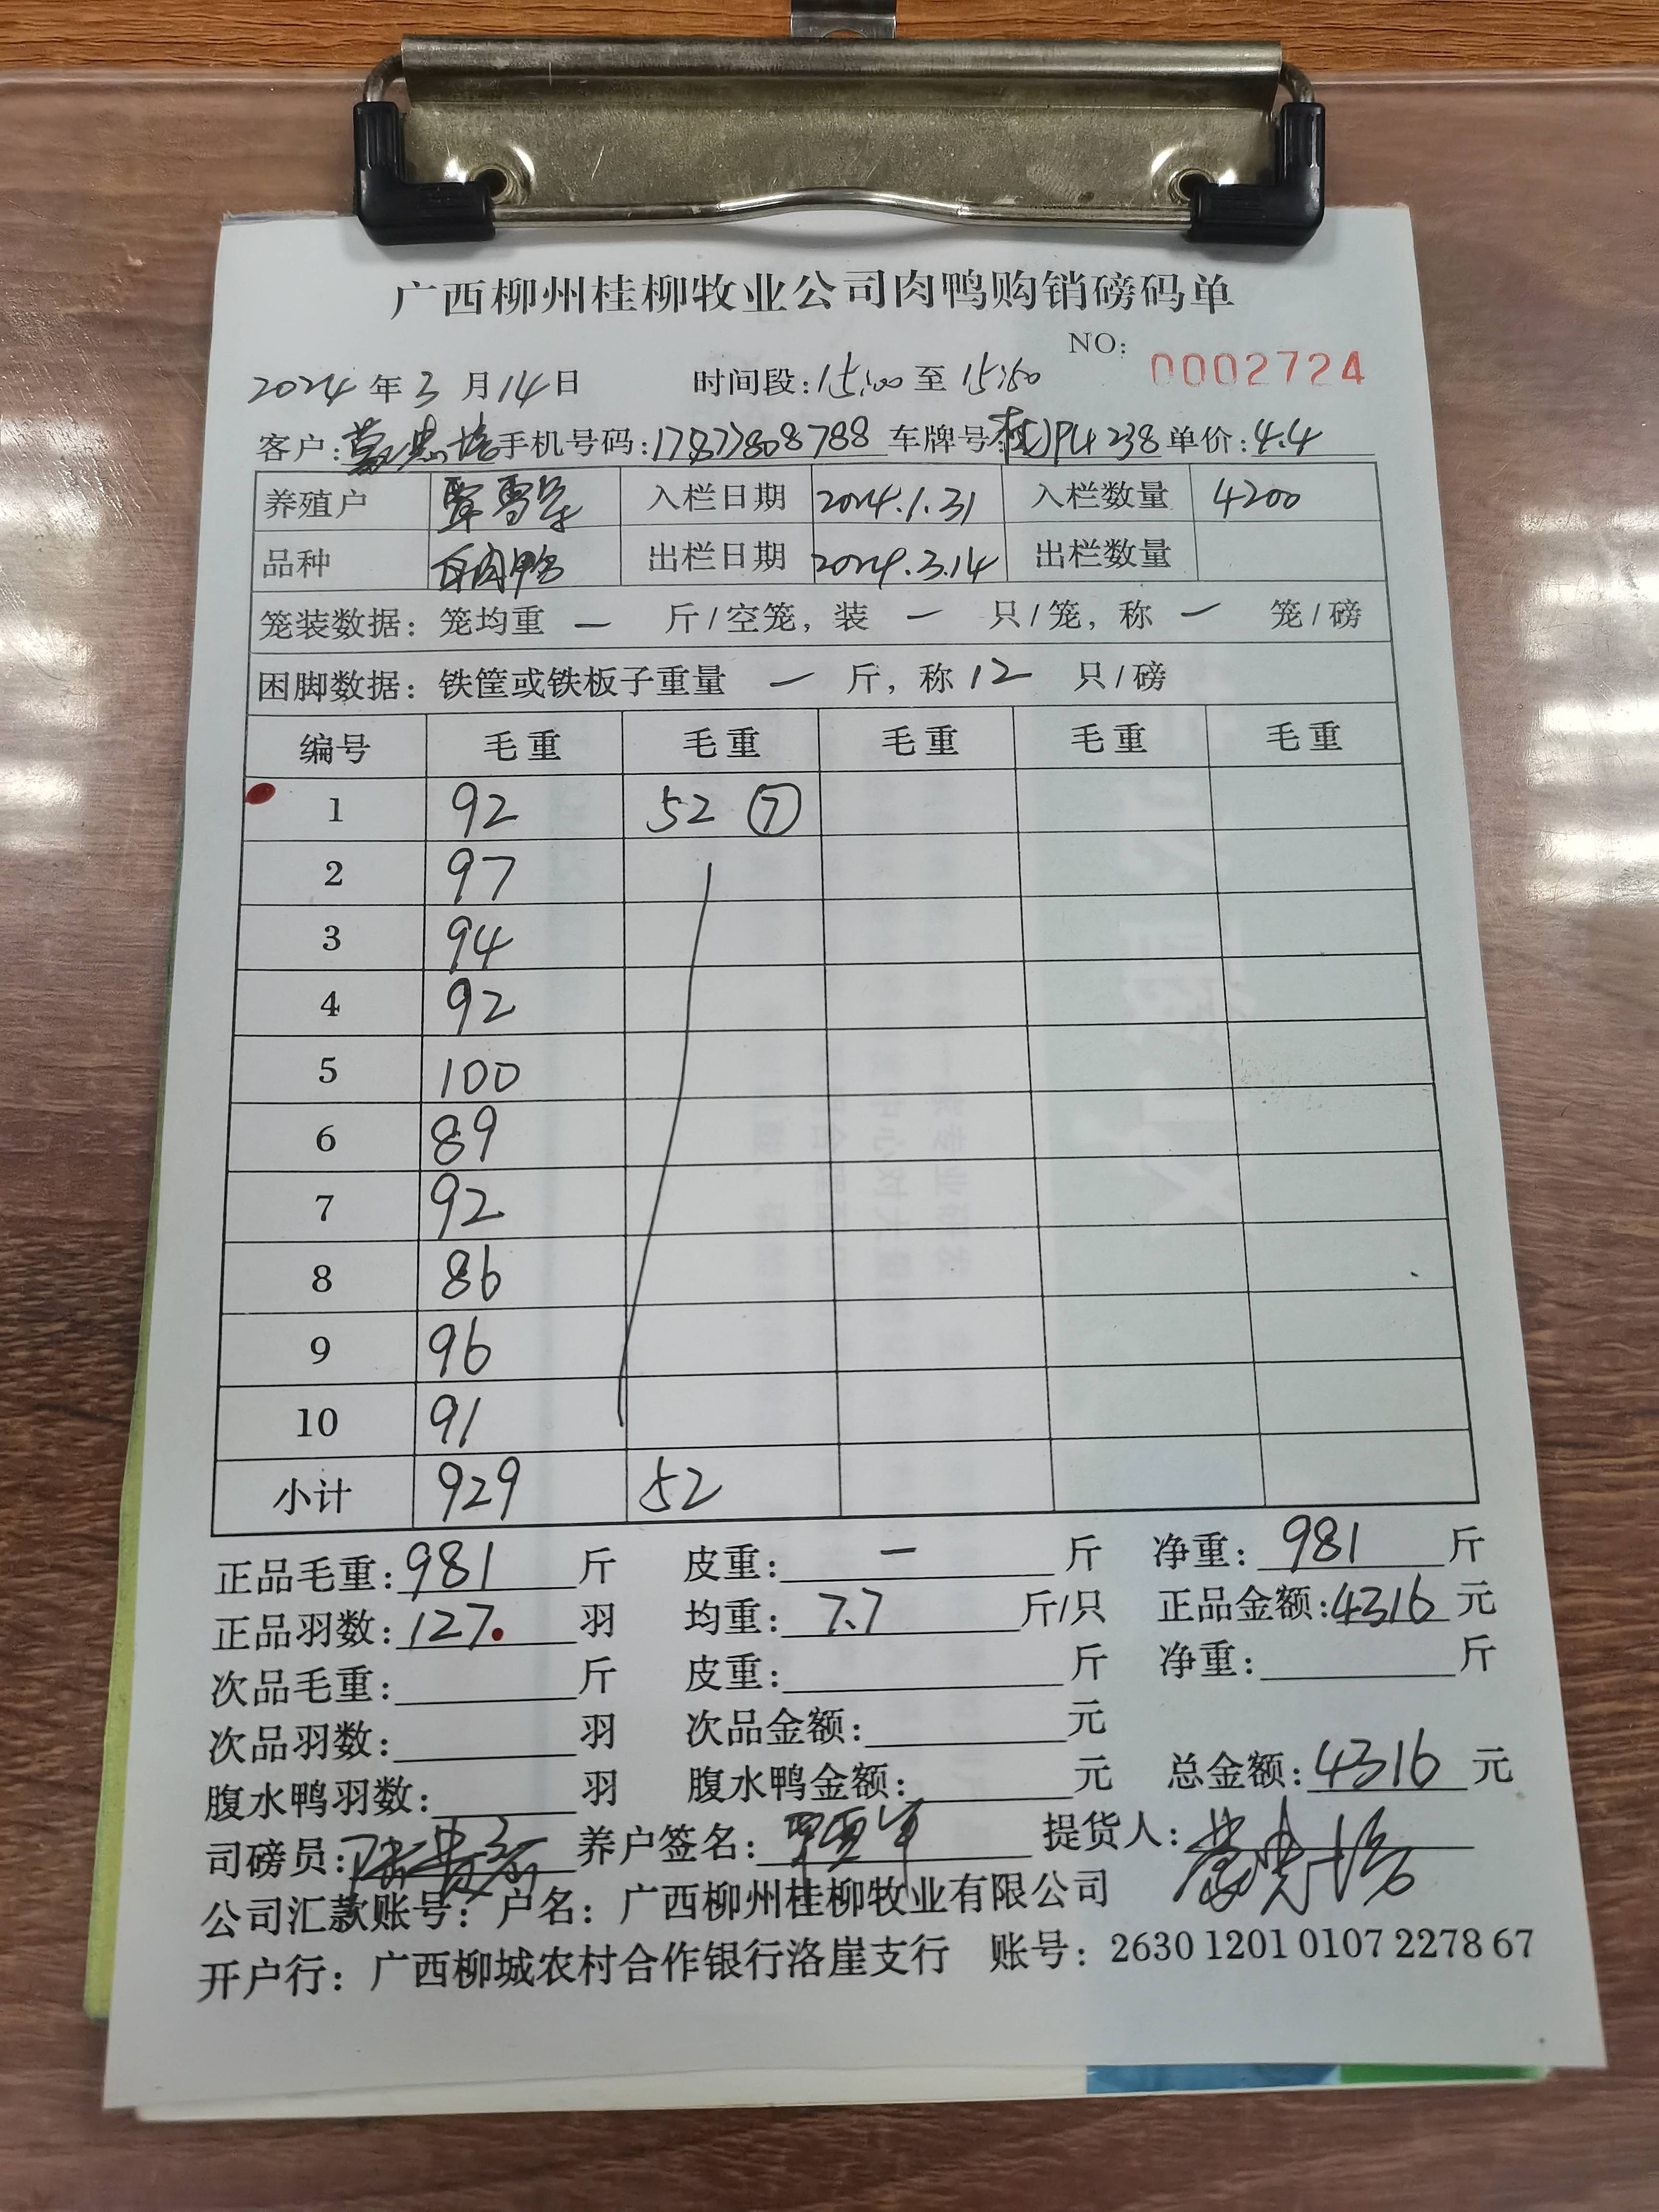 广西柳州桂柳牧业公司肉鸭购销磅码单
NO: 0002724
2024 年 3 月 14 日 时间段: 15:00 至 15:50
客户: 手机号码: 17877808788 车牌号: 238 单价: 4.4
养殖户 入栏日期 2024.1.31 入栏数量 4200
品种 白肉鸭 出栏日期 2024.3.14 出栏数量
笼装数据: 笼均重 — 斤/空笼, 装 — 只/笼, 称 — 笼/磅
困脚数据: 铁筐或铁板子重量 — 斤, 称 12 只/磅
编号 毛重 毛重 毛重 毛重 毛重
1 92 52 ⑦
2 97
3 94
4 92
5 100
6 89
7 92
8 86
9 96
10 91
小计 929 52
正品毛重: 981 斤 皮重: — 斤 净重: 981 斤
正品羽数: 127. 羽 均重: 7.7 斤/只 正品金额: 4316 元
次品毛重: 斤 皮重: 斤 净重: 斤
次品羽数: 羽 次品金额: 元
腹水鸭羽数: 羽 腹水鸭金额: 元 总金额: 4316 元
司磅员: 养户签名: 提货人:
公司汇款账号: 户名: 广西柳州桂柳牧业有限公司
开户行: 广西柳城农村合作银行洛崖支行 账号: 2630 1201 0107 2278 67